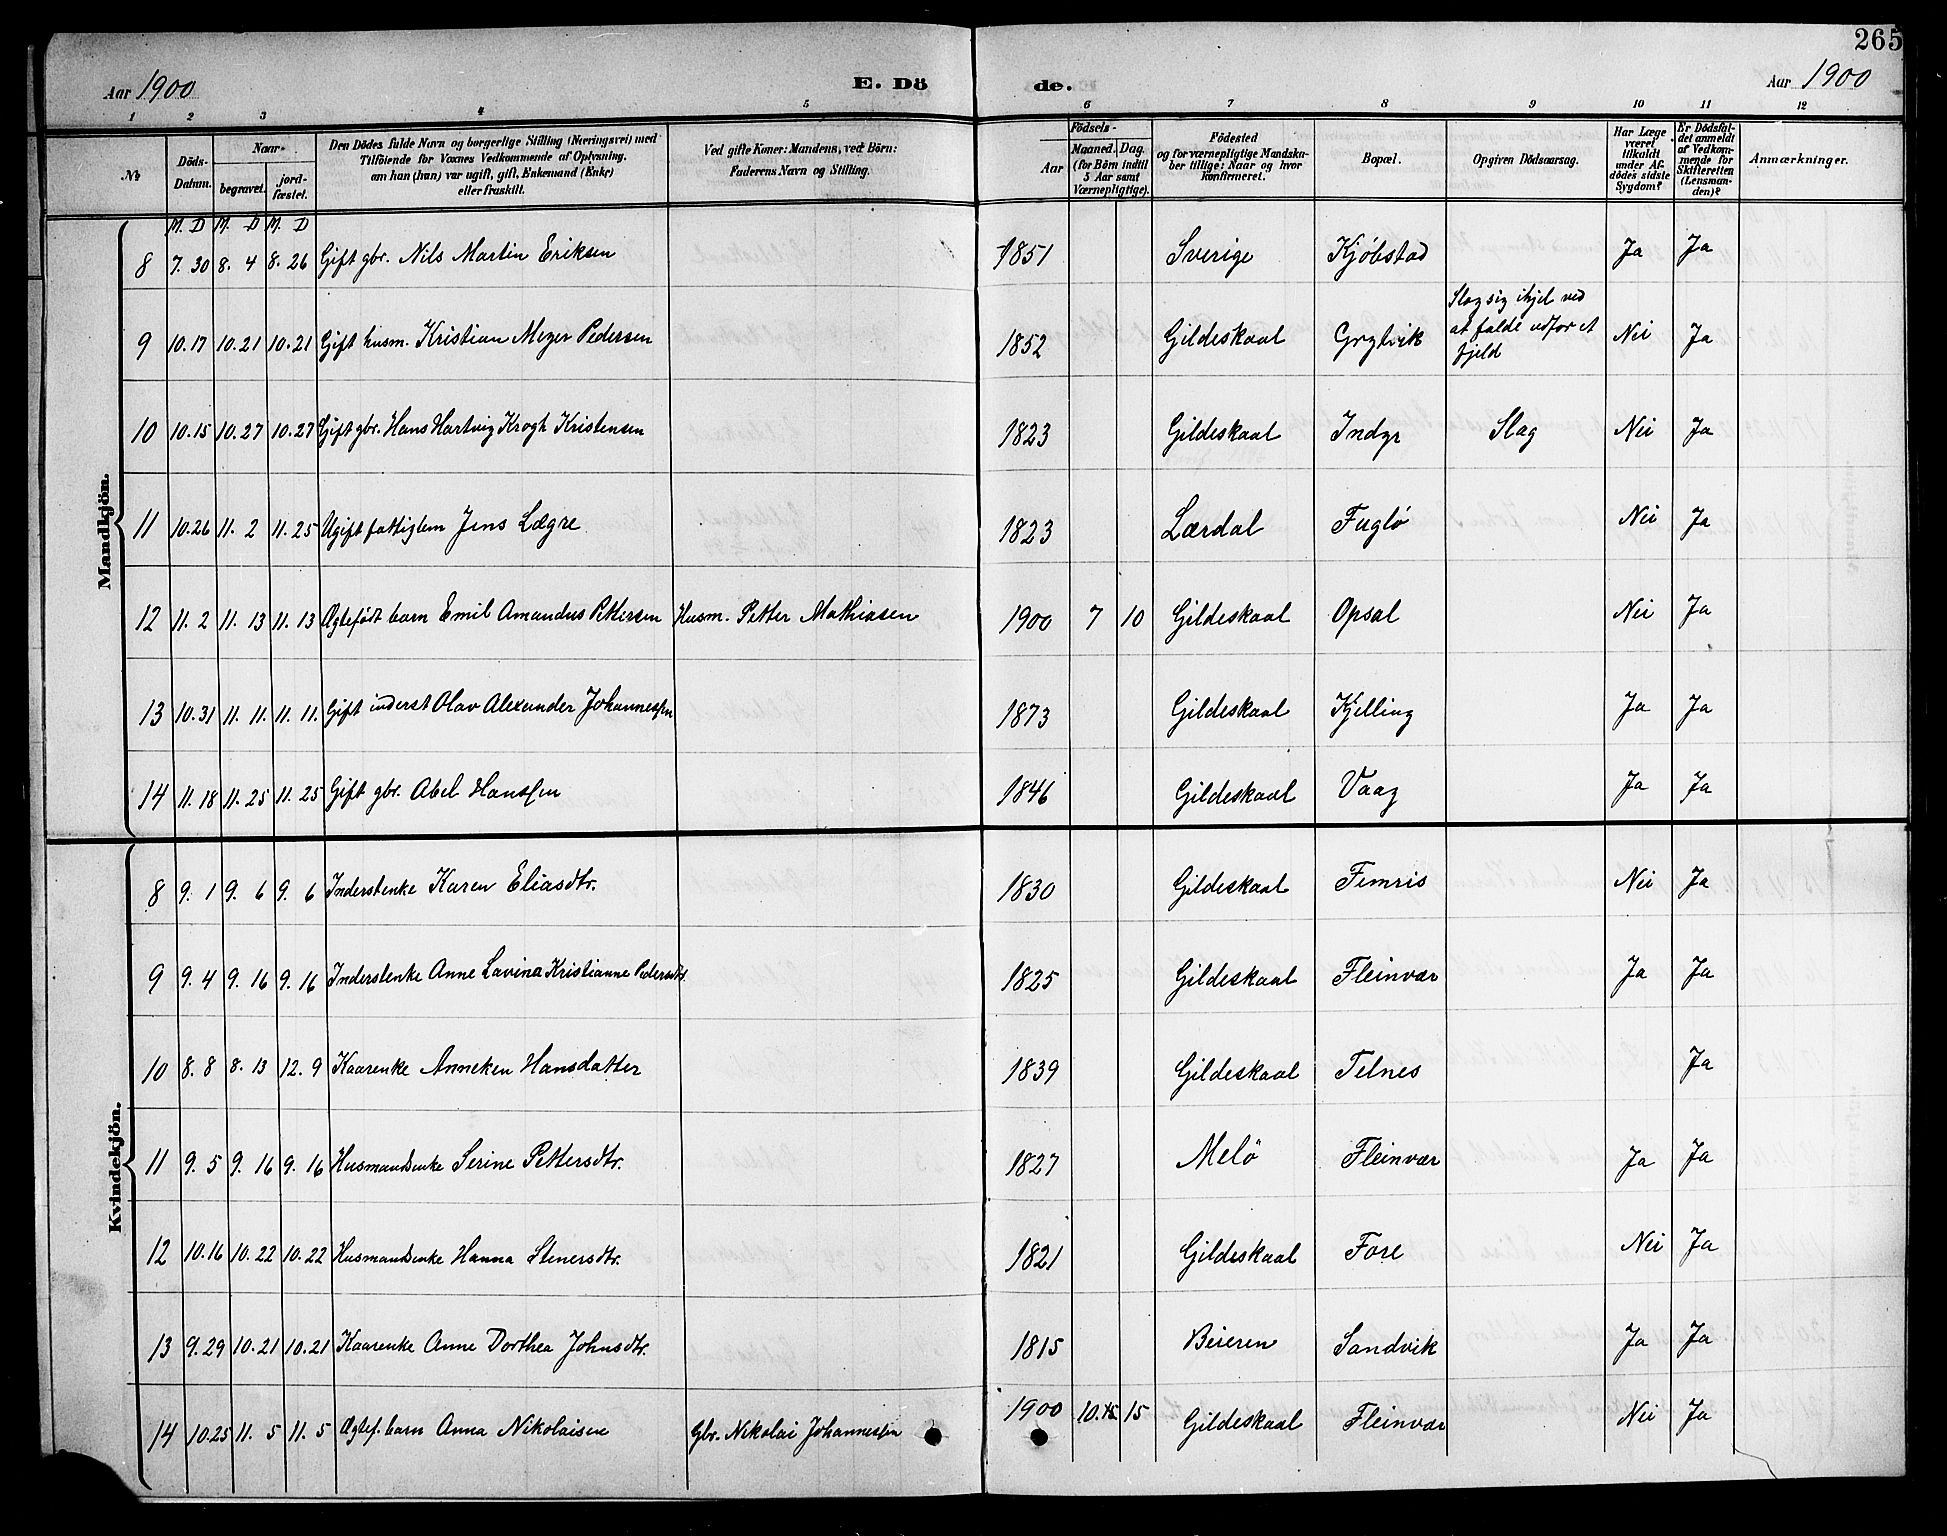 265
Aar 1900 E. Dö de. Aar 1900
1 2 3 4 5 6 7 8 9 10 11 12
№ Döds-Datum. Naar begravet. jordfæstet. Den Dödes fulde Navn og borgerlige Stilling (Næringsvei) med Tilföiende for Voxnes Vedkommende af Oplysning, om han (hun) var ugift, gift, Enkemand (Enke) eller fraskilt. Ved gifte Koner: Mandens, ved Börn: Faderens Navn og Stilling. Födsels- Aar Maaned. Dag. (for Börn indtil 5 Aar samt Værnepligtige). Födested og for værnepligtige Mandskaber tillige: Naar og hvor konfirmeret. Bopæl. Opgiven Dödsaarsag. Har Læge været tilkaldt under Afdödes sidste Sygdom? Er Dödsfaldet anmeldt af Vedkommende for Skifteretten (Lensmanden)? Anmærkninger.
M. D M. D M. D
Mandkjön.
8 7. 30 8. 4 8. 26 Gift gbr. Nils Martin Eriksen 1851 Sverige Kjøbstad Ja Ja
9 10.17 10.21 10.21 Gift husm. Kristian Meyer Pedersen 1852 Gildeskaal Grytvik Slog sig ihjel ved at falde udfor et fjeld Nei Ja
10 10.15 10.27 10.27 Gift gbr. Hans Hartvig Krogh Kristensen 1823 Gildeskaal Indyr Slag Nei Ja
11 10.26 11. 2 11. 25 Ugift fattiglem Jens Lægre 1823 Lærdal Fuglø Nei Ja
12 11. 2 11. 13 11. 13 Ægtefødt barn Emil Amandus Pettersen Husm. Petter Mathiasen 1900 7 10 Gildeskaal Opsal Nei Ja
13 10.31 11. 11. 11. 11. Gift inderst Olav Alexander Johannessen 1873 Gildeskaal Kjelling Ja Ja
14 11. 18 11. 25 11. 25 Gift gbr. Abel Hanssen 1846 Gildeskaal Vaag Ja Ja
Kvindekjön.
8 9. 1 9. 6 9. 6 Inderstenke Karen Eliasdtr. 1830 Gildeskaal Femris Nei Ja
9 9. 4 9. 16 9. 16 Inderstenke Anne Lavina Kristianne Pedersdtr. 1825 Gildeskaal Fleinvær Ja Ja
10 8. 8 8. 13 12. 9 Kaarenke Anneken Hansdatter 1839 Gildeskaal Telnes Ja
11 9. 5 9. 16 9. 16 Husmandsenke Serine Pettersdtr. 1827 Melö Fleinvær Ja Ja
12 10.16 10. 22 10. 22 Husmandsenke Hanna Stenersdtr. 1821 Gildeskaal Fore Nei Ja
13 9. 29 10.21 10.21 Kaarenke Anne Dorthea Johnsdtr. 1815 Beieren Sandvik Ja Ja
14 10.25 11. 5 11. 5 Ægtef. barn Anna Nikolaisen Gbr. Nikolai Johannessen 1900 10. 15 Gildeskaal Fleinvær Nei Ja